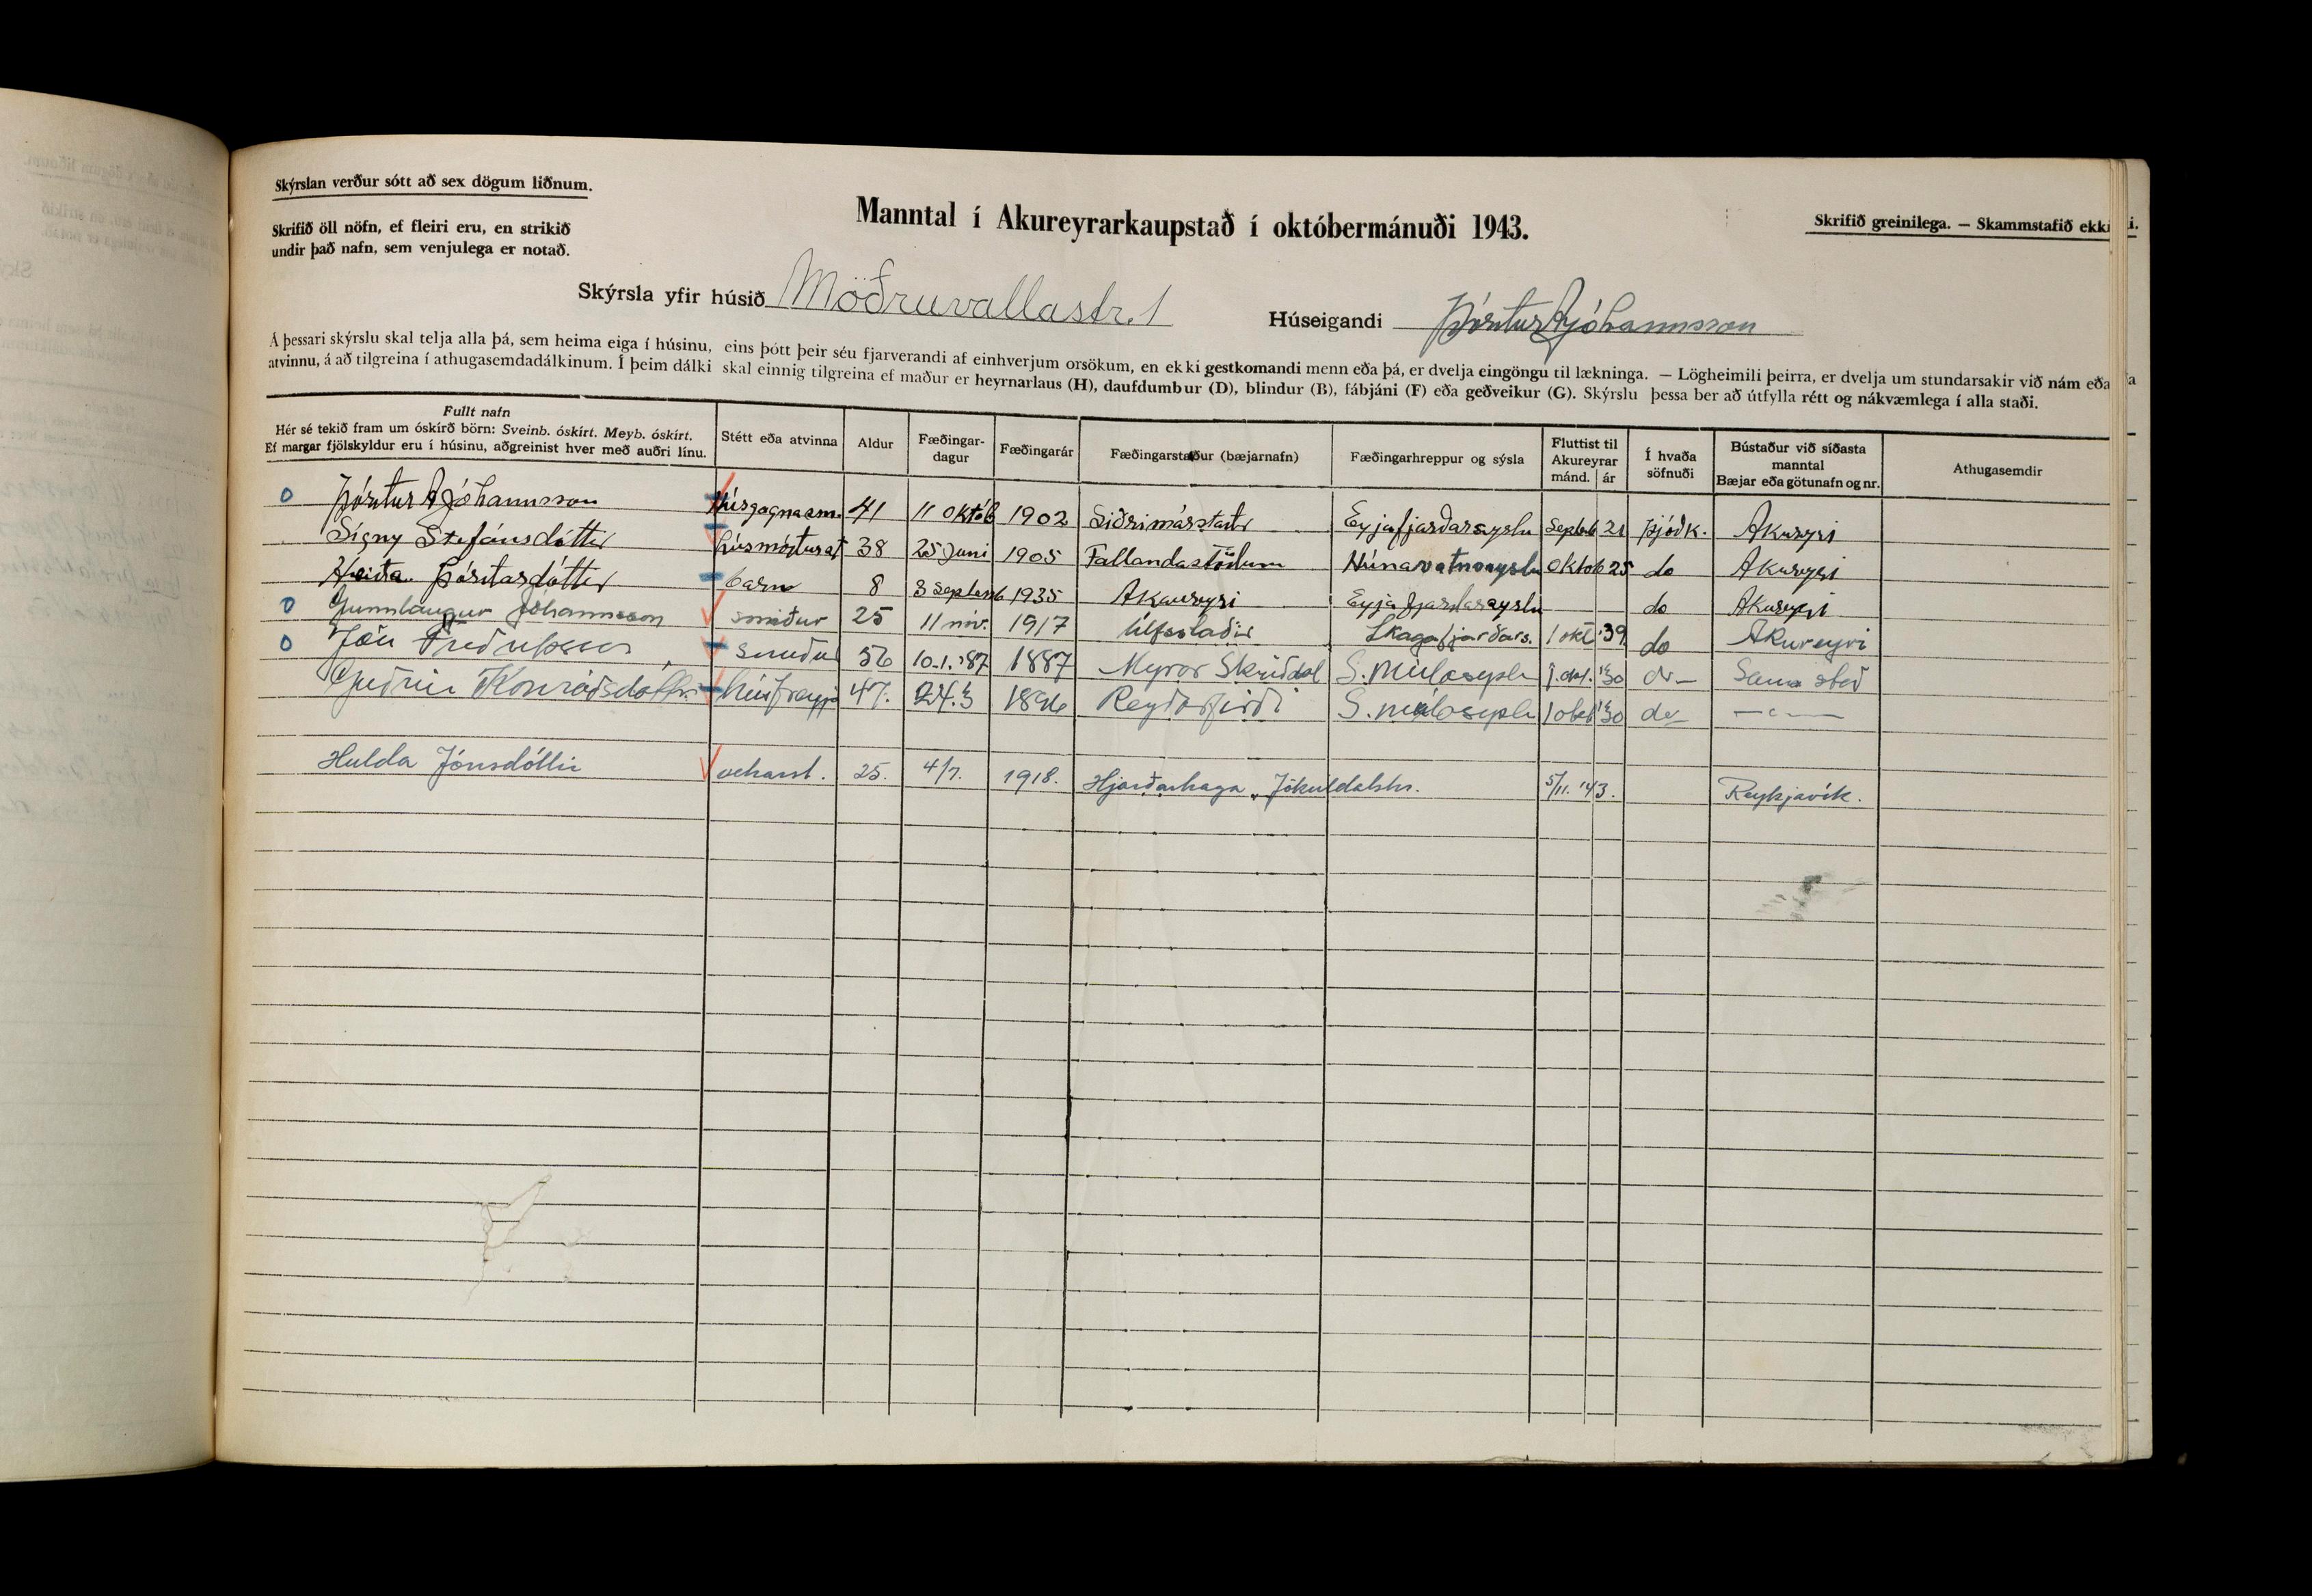 Skýrslan verður sótt að sex dögum liðnum.
Skrifið öll nöfn, ef fleiri eru, en strikið
undir það nafn, sem venjulega er notað.
Manntal í Akureyrarkaupstað í októbermánuði 1943.
Skrifið greinilega. — Skammstafið ekki
Skýrsla yfir húsið Möðruvallastr. 1
Húseigandi Þórður A Jóhannsson
Á þessari skýrslu skal telja alla þá, sem heima eiga í húsinu, eins þótt þeir séu fjarverandi af einhverjum orsökum, en ekki gestkomandi menn eða þá, er dvelja eingöngu til lækninga. — Lögheimili þeirra, er dvelja um stundarsakir við nám eða
atvinnu, á að tilgreina í athugasemdadálkinum. Í þeim dálki skal einnig tilgreina ef maður er heyrnarlaus (H), daufdumbur (D), blindur (B), fábjáni (F) eða geðveikur (G). Skýrslu þessa ber að útfylla rétt og nákvæmlega í alla staði.
Fullt nafn
Hér sé tekið fram um óskírð börn: Sveinb. óskírt. Meyb. óskírt.
Ef margar fjölskyldur eru í húsinu, aðgreinist hver með auðri línu.
Stétt eða atvinna
Aldur
Fæðingar-
dagur
Fæðingarár
Fæðingarstaður (bæjarnafn)
Fæðingarhreppur og sýsla
Fluttist til
Akureyrar
mánd. ár
Í hvaða
söfnuði
Bústaður við síðasta
manntal
Bæjar eða götunafn og nr.
Athugasemdir
Þórður A Jóhannsson Húsgagnasm. 41 11 októb 1902 Eyjafjarðarsyslu Septeb 21 Þjóðk. Akureyri
Signy Stefánsdóttir 38 25 Juni 1905 Húnavatnssyslu Oktob 25 do Akureyri
Heiða Þórðardóttir barn 8 3 Septemb 1935 Akureyri Eyjafjarðarsyslu do Akureyri
Gunnlaugur Jóhannsson smiður 25 11 nóv. 1917 Úlfsstaðir Skagafjarðars. 1 okt '39 do Akureyri
Jón smiður 56 10.1. '87 1887 Myrar Skriðdal S. Múlasyslu 1. okt. '30 do Sama stað
Guðrún Konráðsdóttir húsfreyja 47. 24.3 1896 Reyðarfirði S. múlasyslu 1 okt '30 do — " —
Hulda Jónsdóttir 25. 4/7. 1918. Hjarðarhaga, Jökuldalshr. 5/11. '43. Reykjavík.